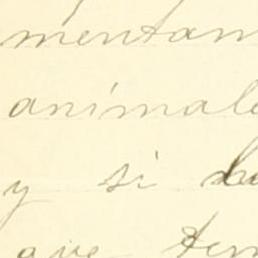 mentan
animale
y si
que tem